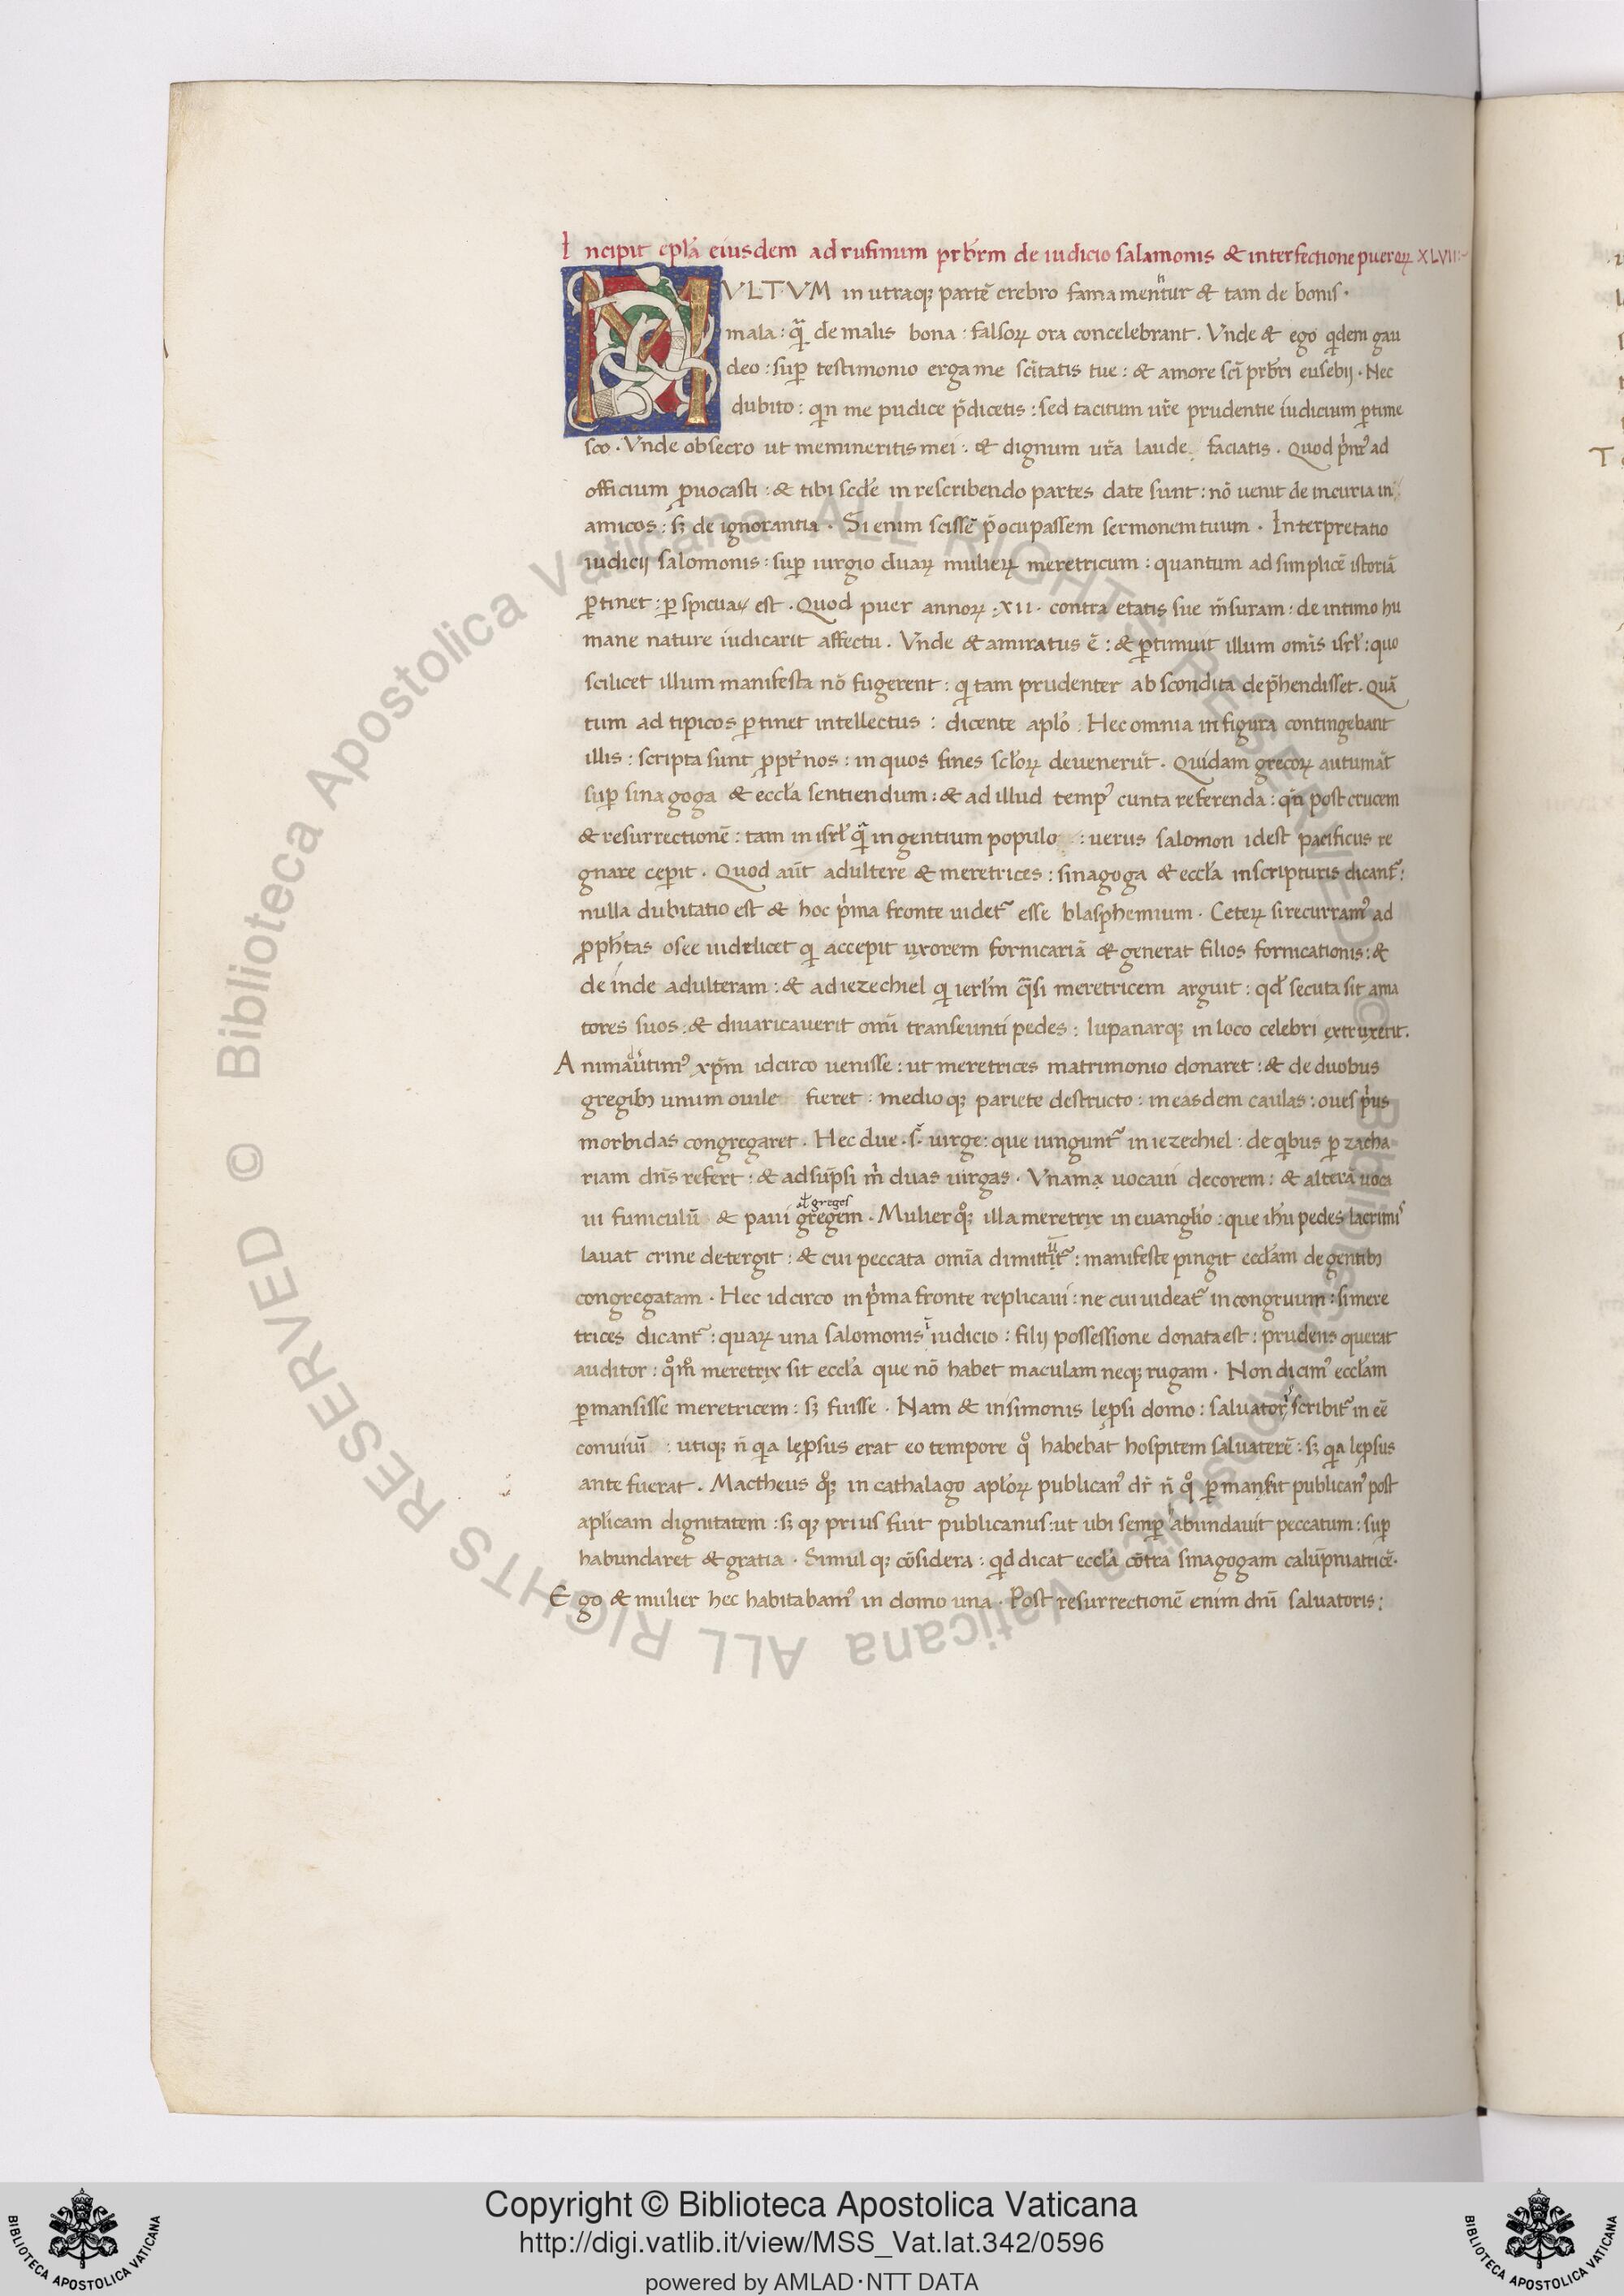 Incipit epła eiusdem ad rufinum prb̄rm de iudicio salamonis & interfectione puerorꝝ XLVII:~
MVLTVM in utraqꝫ partē crebro fama mentitur & tam de bonis ·
mala : qͣ de malis bona : falsorꝝ ora concelebrant . Vnde & ego qͥdem gau
deo : suꝑ testimonio erga me scītatis tue : & amore scī prb̄ri eusebij · Nec
dubito : qͥn me pudice p̄dicetis : sed tacitum ur̄e prudentie iudicium ꝑtime
sco . Vnde obsecro ut memineritis mei : & dignum ur̄a laude faciatis . Quod pͥmꝰ ad
officium ꝓuocasti : & tibi scd̄e in rescribendo partes date sunt : nō uenit de incuria in
amicos : sꝫ de ignorantia . Si enim scissē p̄ocupassem sermonem tuum . Interpretatio
iudicij salomonis : suꝑ iurgio duarꝝ mulierꝝ meretricum : quantum ad simplicē istoriā
ꝑtinet : ꝑspicua est . Quod puer annorꝝ .XII. contra etatis sue m̄suram : de intimo hu
mane nature iudicarit affectu . Vnde & amiratus ē : & ꝑtimuit illum omīs isrł : quo
scilicet illum manifesta nō fugerent : qͥ tam prudenter abscondita dep̄hendisset . Quā
tum ad tipicos ꝑtinet intellectus : dicente apło . Hec omnia in figura contingebant
illis : scripta sunt ꝓpt̄ nos : in quos fines scłorꝝ deuenerūt . Quidam grecorꝝ autumāt
suꝑ sinagoga & eccła sentiendum : & ad illud tempꝰ cunta referenda : qn̄ post crucem
& resurrectionē : tam in isrł qͣ in gentium populo : verus salomon idest pacificus re
gnare cepit . Quod aūt adultere & meretrices : sinagoga & eccła in scripturis dicantᷣ :
nulla dubitatio est & hoc pͥma fronte uidetᷣ esse blasphemium . Ceterꝝ si recurramꝰ ad
ꝓph̄tas osee uidelicet qͥ accepit uxorem fornicariā & generat filios fornicationis : &
de inde adulteram : & ad iezechiel qͥ ierłm qͣsi meretricem arguit : qd̄ secuta sit ama
tores suos : & diuaricauerit omī transeunti pedes : lupanarqꝫ in loco celebri extruxerit .
Animaduertimꝰ xp̄m idcirco uenisse : ut meretrices matrimonio donaret : & de duobus
gregibꝫ unum ouile fieret : medioqꝫ pariete destructo : in easdem caulas : oues pͥus
morbidas congregaret . Hec due .s. uirge : que iunguntᷣ in iezechiel : de qͥbus ꝑ zacha
riam dn̄s refert : & adsūpsi mͥ duas uirgas . Vnam uocaui decorem : & alterā uoca
ui funiculū & paui gregem . Mulier qͦqꝫ illa meretrix in euangłio : que ih̄u pedes lacrimis
ał greges
lauat crine detergit : & cui peccata omīa dimittūtᷣ : manifeste pingit eccłam de gentibꝫ
congregatam . Hec idcirco in pͥma fronte replicaui : ne cui uideatᷣ incongruum : si mere
trices dicantᷣ : quarꝝ una salomonis iudicio : filij possessione donata est : prudens querat
auditor : qͦm̊ meretrix sit eccła que nō habet maculam neqꝫ rugam . Non dicimꝰ eccłam
ꝑmansisse meretricem : sꝫ fuisse . Nam & in simonis lepsi domo : saluator scribitᷣ inēe
conuiuī : utiqꝫ n̄ qͥa lepsus erat eo tempore qͦ habebat hospitem saluaterē : sꝫ qͥa lepsus
ante fuerat . Mactheus qͦqꝫ in cathalago apłorꝝ publicanꝰ dr̄ n̄ qͦ ꝑmansit publicanꝰ post
apłicam dignitatem : sꝫ qꝫ prius fuit publicanus : ut ubi semꝑ habundauit peccatum : suꝑ
habundaret & gratia . Simulqꝫ cōsidera : qͥd dicat eccła cōtra sinagogam calūpniatricē .
Ego & mulier hec habitabamꝰ in domo una . Post resurrectionē enim dn̄i saluatoris :
Copyright © Biblioteca Apostolica Vaticana
http://digi.vatlib.it/view/MSS_Vat.lat.342/0596
powered by AMLAD·NTT DATA
BIBLIOTECA APOSTOLICA VATICANA
BIBLIOTECA APOSTOLICA VATICANA
© Biblioteca Apostolica Vaticana ALL RIGHTS RESERVED
© Biblioteca Apostolica Vaticana ALL RIGHTS RESERVED